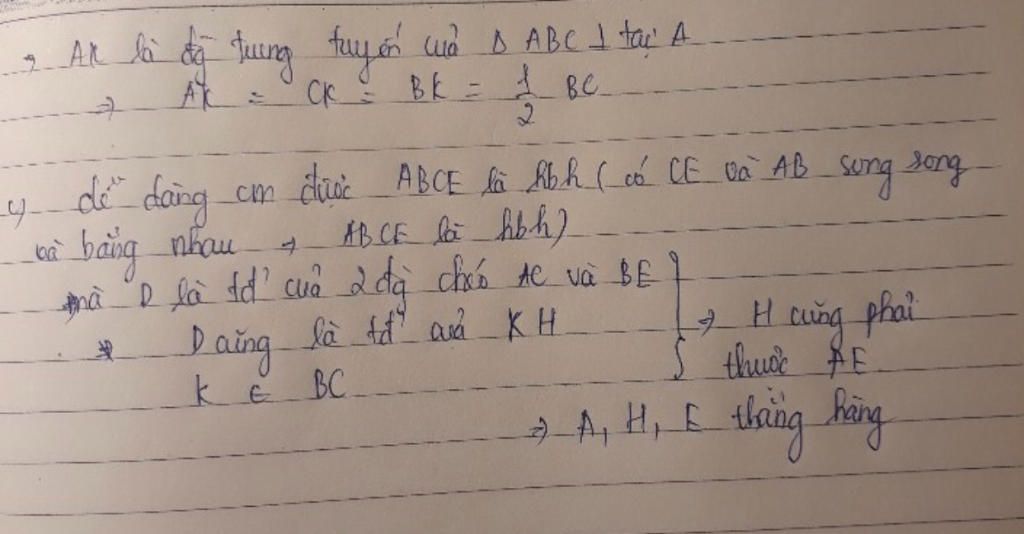 → AK là đg trung tuyến của Δ ABC ⊥ tại A
⇒ AK = CK = BK = 1/2 BC
c) dễ dàng cm được ABCE là hbh ( có CE và AB song song
và bằng nhau → ABCE là hbh)
mà D là tđ' của 2 đg chéo AC và BE
⇒ D cũng là tđ' của KH
K ∈ BC
} ⇒ H cũng phải
thuộc AE
⇒ A, H, E thẳng hàng